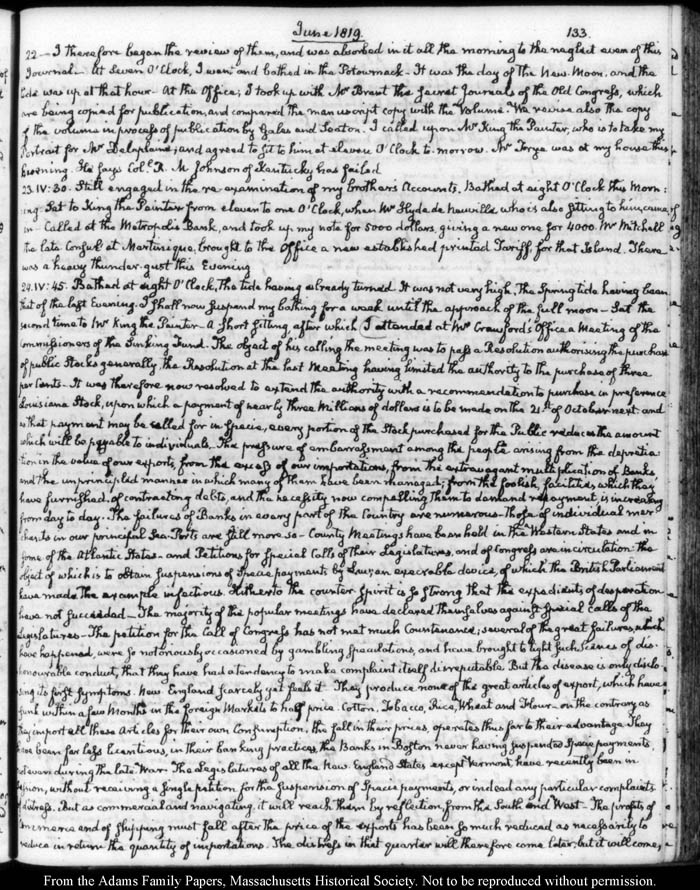 June 1819.
133.
22— I therefore began the review of them, and was absorbed in it all the morning to the neglect even of this
Journal— At Seven O'Clock, I went and bathed in the Potowmack— It was the day of the New Moon, and the
tide was up at that hour— At the Office, I took up with Mr Brent the secret Journals of the Old Congress, which
are being copied for publication, and compared the manuscript copy with the Volume. We revise also the copy
of the volume in process of publication by Gales and Seaton. I called upon Mr King the Painter, who is to take my
Portrait for Mr Delaplaine; and agreed to sit to him at eleven O'Clock to-morrow. Mr Forsya was at my house this
Evening. He says Coll. R. M Johnson of Kentucky has failed
23. IV:30. Still engaged in the re-examination of my brother's Accounts, Bathed at eight O'Clock this Morn:
ing. Sat to King the Painter from eleven to one O'Clock, when Mr Hyde de Neuville, who is also sitting to him, came
in— Called at the Metropolis Bank, and took up my note for 5000 dollars, giving a new one for 4000. Mr Mitchell
the late Consul at Martinique, brought to the Office a new established printed Tariff for that Island. There
was a heavy thunder-gust this Evening
24. IV:45. Bathed at eight O'Clock, The tide having already turned. It was not very high, The Spring tide having been
that of the last Evening. I shall now suspend my bathing for a week until the approach of the full moon— Sat the
second time to Mr King the Painter— A short sitting, after which I attended at Mr Crawford's Office a Meeting of the
Commissioners of the Sinking Fund. The object of his calling the meeting was to pass a Resolution authorising the purchase
of public Stocks generally, the Resolution at the last Meeting having limited the authority to the purchase of three
per Cents— It was therefore now resolved to extend the authority with a recommendation to purchase in preference
Louisiana Stock, upon which a payment of nearly three Millions of dollars is to be made on the 21st of October next. and
as that payment may be called for in specie, every portion of the Stock purchased for the Public reduces the amount
which will be payable to individuals. The pressure of embarrassment among the people arising from the deprecia:
tion in the value of our exports, from the excess of our importations, from the extravagant multiplication of Banks
and the unprincipled manner in which many of them have been managed; from the foolish facilities which they
have furnished, of contracting debts, and the necessity now compelling them to demand repayment, is increasing
from day to day. The failures of Banks in every part of the Country are numerous— Those of individual mer
chants in our principal Sea-Ports are still more so— County Meetings have been held in the Western States and in
some of the Atlantic States— and Petitions for special Calls of their Legislatures, and of Congress are in circulation— the
object of which is to obtain suspensions of Specie payments by Law; an execrable device, of which the British Parliament
have made the example infectious. Hitherto the counter-spirit is so strong that the expedients of desperation
have not succeeded— The majority of the popular meetings have declared themselves against special calls of the
Legislatures— The petition for the Call of Congress has not met much Countenance; several of the great failures, which
have happened, were so notoriously occasioned by gambling speculations, and have brought to light such scenes of dis:
honourable conduct, that they have had a tendency to make complaint itself disreputable. But the disease is only disclo
sing its first symptoms. New England scarcely yet feels it. They produce none of the great articles of export, which have
sunk within a few Months in the foreign Markets to half price. Cotton, Tobacco, Rice, Wheat and Flour— on the contrary as
they import all these Articles for their own Consumption, the fall in their prices, operates thus far to their advantage They
have been far less licentious, in their banking practices, the Banks in Boston never having suspended Specie payments
not even during the late War. The Legislatures of all the New England States except Vermont, have recently been in
session, without receiving a single petition for the suspension of Specie payments, or indeed any particular complaints
of distress. But as commercial and navigating, it will reach them by reflection, from the South and West— The profits of
commerce and of shipping must fall after the price of the exports has been so much reduced as necessarily to
reduce in return the quantity of importations. The distress in that quarter will therefore come later; but it will come,
From the Adams Family Papers, Massachusetts Historical Society. Not to be reproduced without permission.